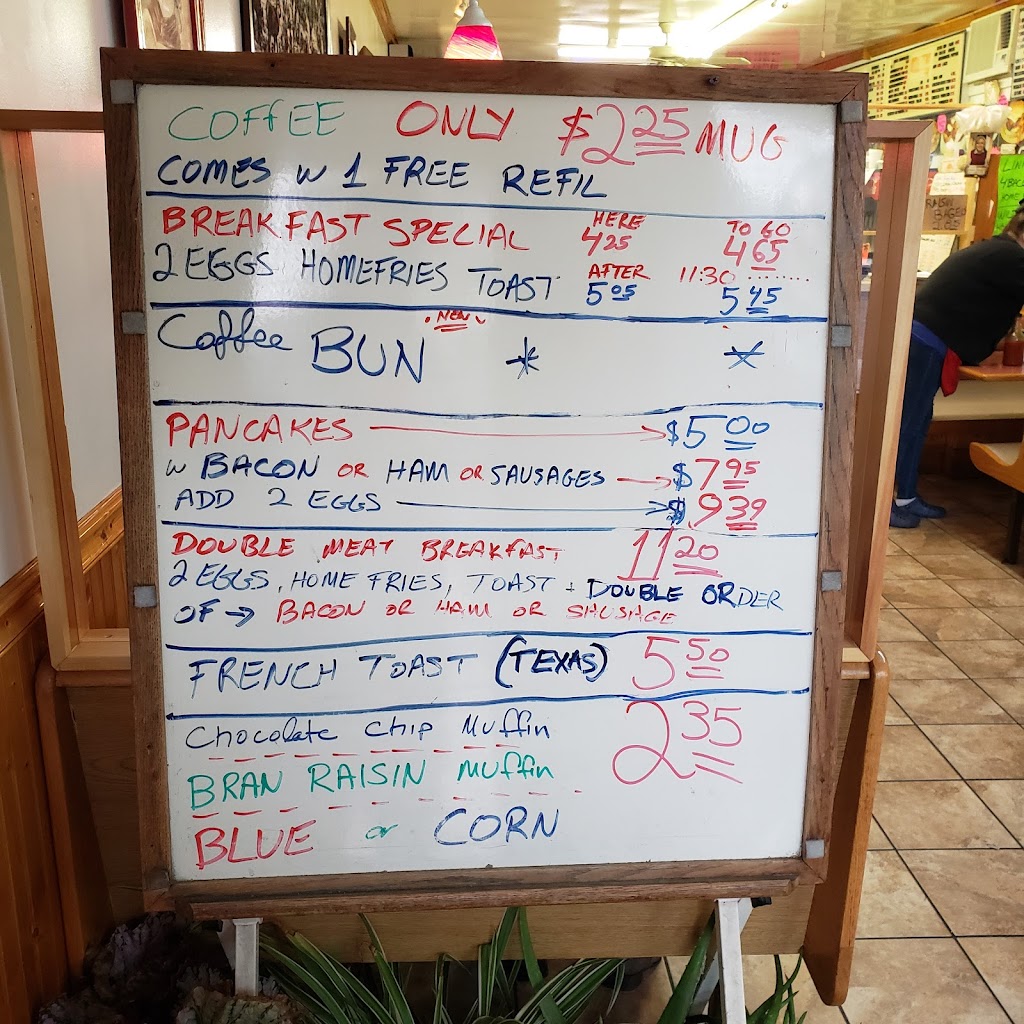 COFFEE ONLY $2.25 MUG
COMES W 1 FREE REFIL
BREAKFAST SPECIAL HERE 425 TO GO 465
2 EGGS, HOMEFRIES TOAST AFTER 11:30 ........
5 05 5 45
Coffee BUN NEW * *
PANCAKES → $5 00
W BACON OR HAM OR SAUSAGES → $7 95
ADD 2 EGGS → $9 39
DOUBLE MEAT BREAKFAST 11 20
2 EGGS, HOME FRIES, TOAST + DOUBLE ORDER
OF → BACON OR HAM OR SAUSAGE
FRENCH TOAST (TEXAS) 5 50
Chocolate Chip Muffin 2 35
BRAN RAISIN Muffin
BLUE or CORN
RAISIN